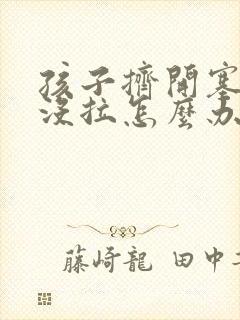 孩子擠開塞
沒拉怎麼办
藤崎龍 田中